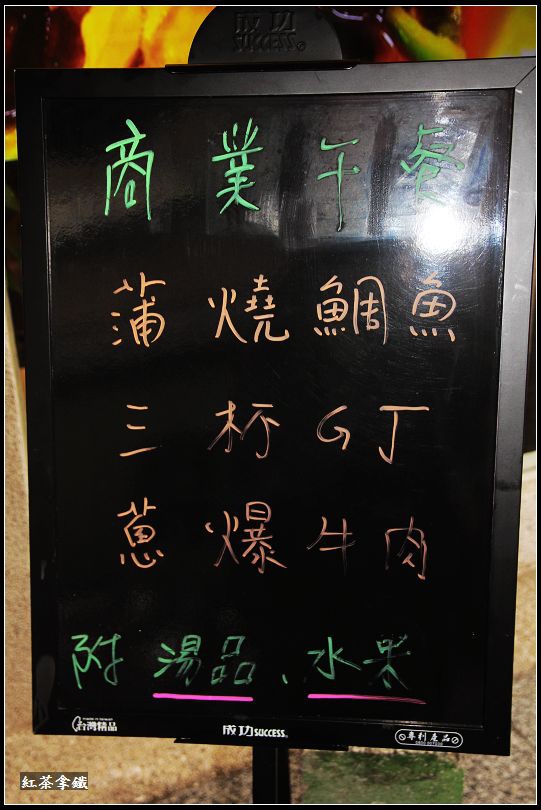 成功
SUCCESS®
商業午餐
蒲燒鯛魚
三杯G丁
蔥爆牛肉
附湯品、水果
台灣精品
成功SUCCESS®
專利產品
紅茶拿鐵